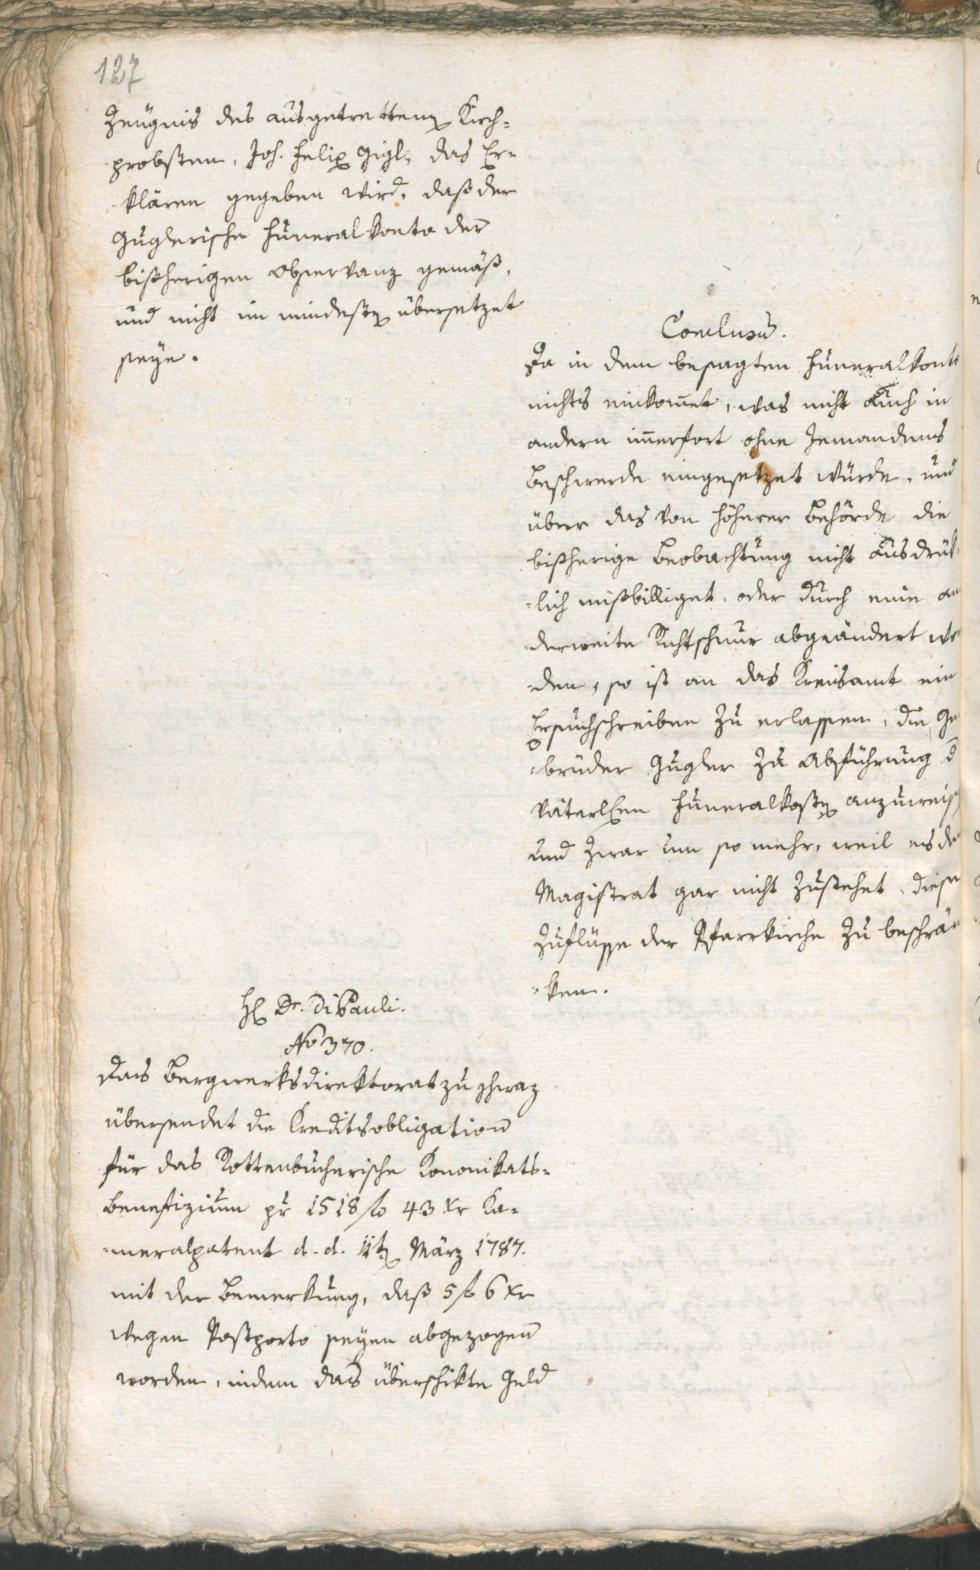 127
Zeugnis des ausgetrettenen Kirch-
probsten, Joh. Felix Gigl, das Er-
klären gegeben wird, daß der
Guglerische Funeralkonto der
bißherigen Observanz gemäß,
und nicht im mindesten übersetzet
seye.
Conclusum.
Da in dem besagten Funeralkonto
nichts einkommet, was nicht auch in
andern immerfort ohne Jemandens
Beschwerde eingesetzet würde, und
über das von höherer Behörde die
bißherige Beobachtung nicht ausdrük-
lich mißbilliget, oder durch eine an
derweite Richtschnur abgeändert wor
den, so ist an das Kreisamt ein
Ersuchschreiben zu erlassen, die Ge
brüder Gugler zu Abführung d
väterlichen Funeralkosten anzuweisen
und zwar um so mehr, weil es dem
Magistrat gar nicht zustehet, diese
Zuflüsse der Pfarrkirche zu beschrän
ken.
H. Dr. Di Pauli.
No 370.
Das Bergwerksdirektorat zu Schwaz
übersendet die Kreditsobligation
für das Rottenbucherische Kanonikats-
benefizium pr 1518 fl 43 Xr Ka-
meralpatent d. d. 11ten März 1787.
mit der Bemerkung, daß 5 fl 6 Xr
wegen Postporto seyen abgezogen
worden, indem das überschikte Geld